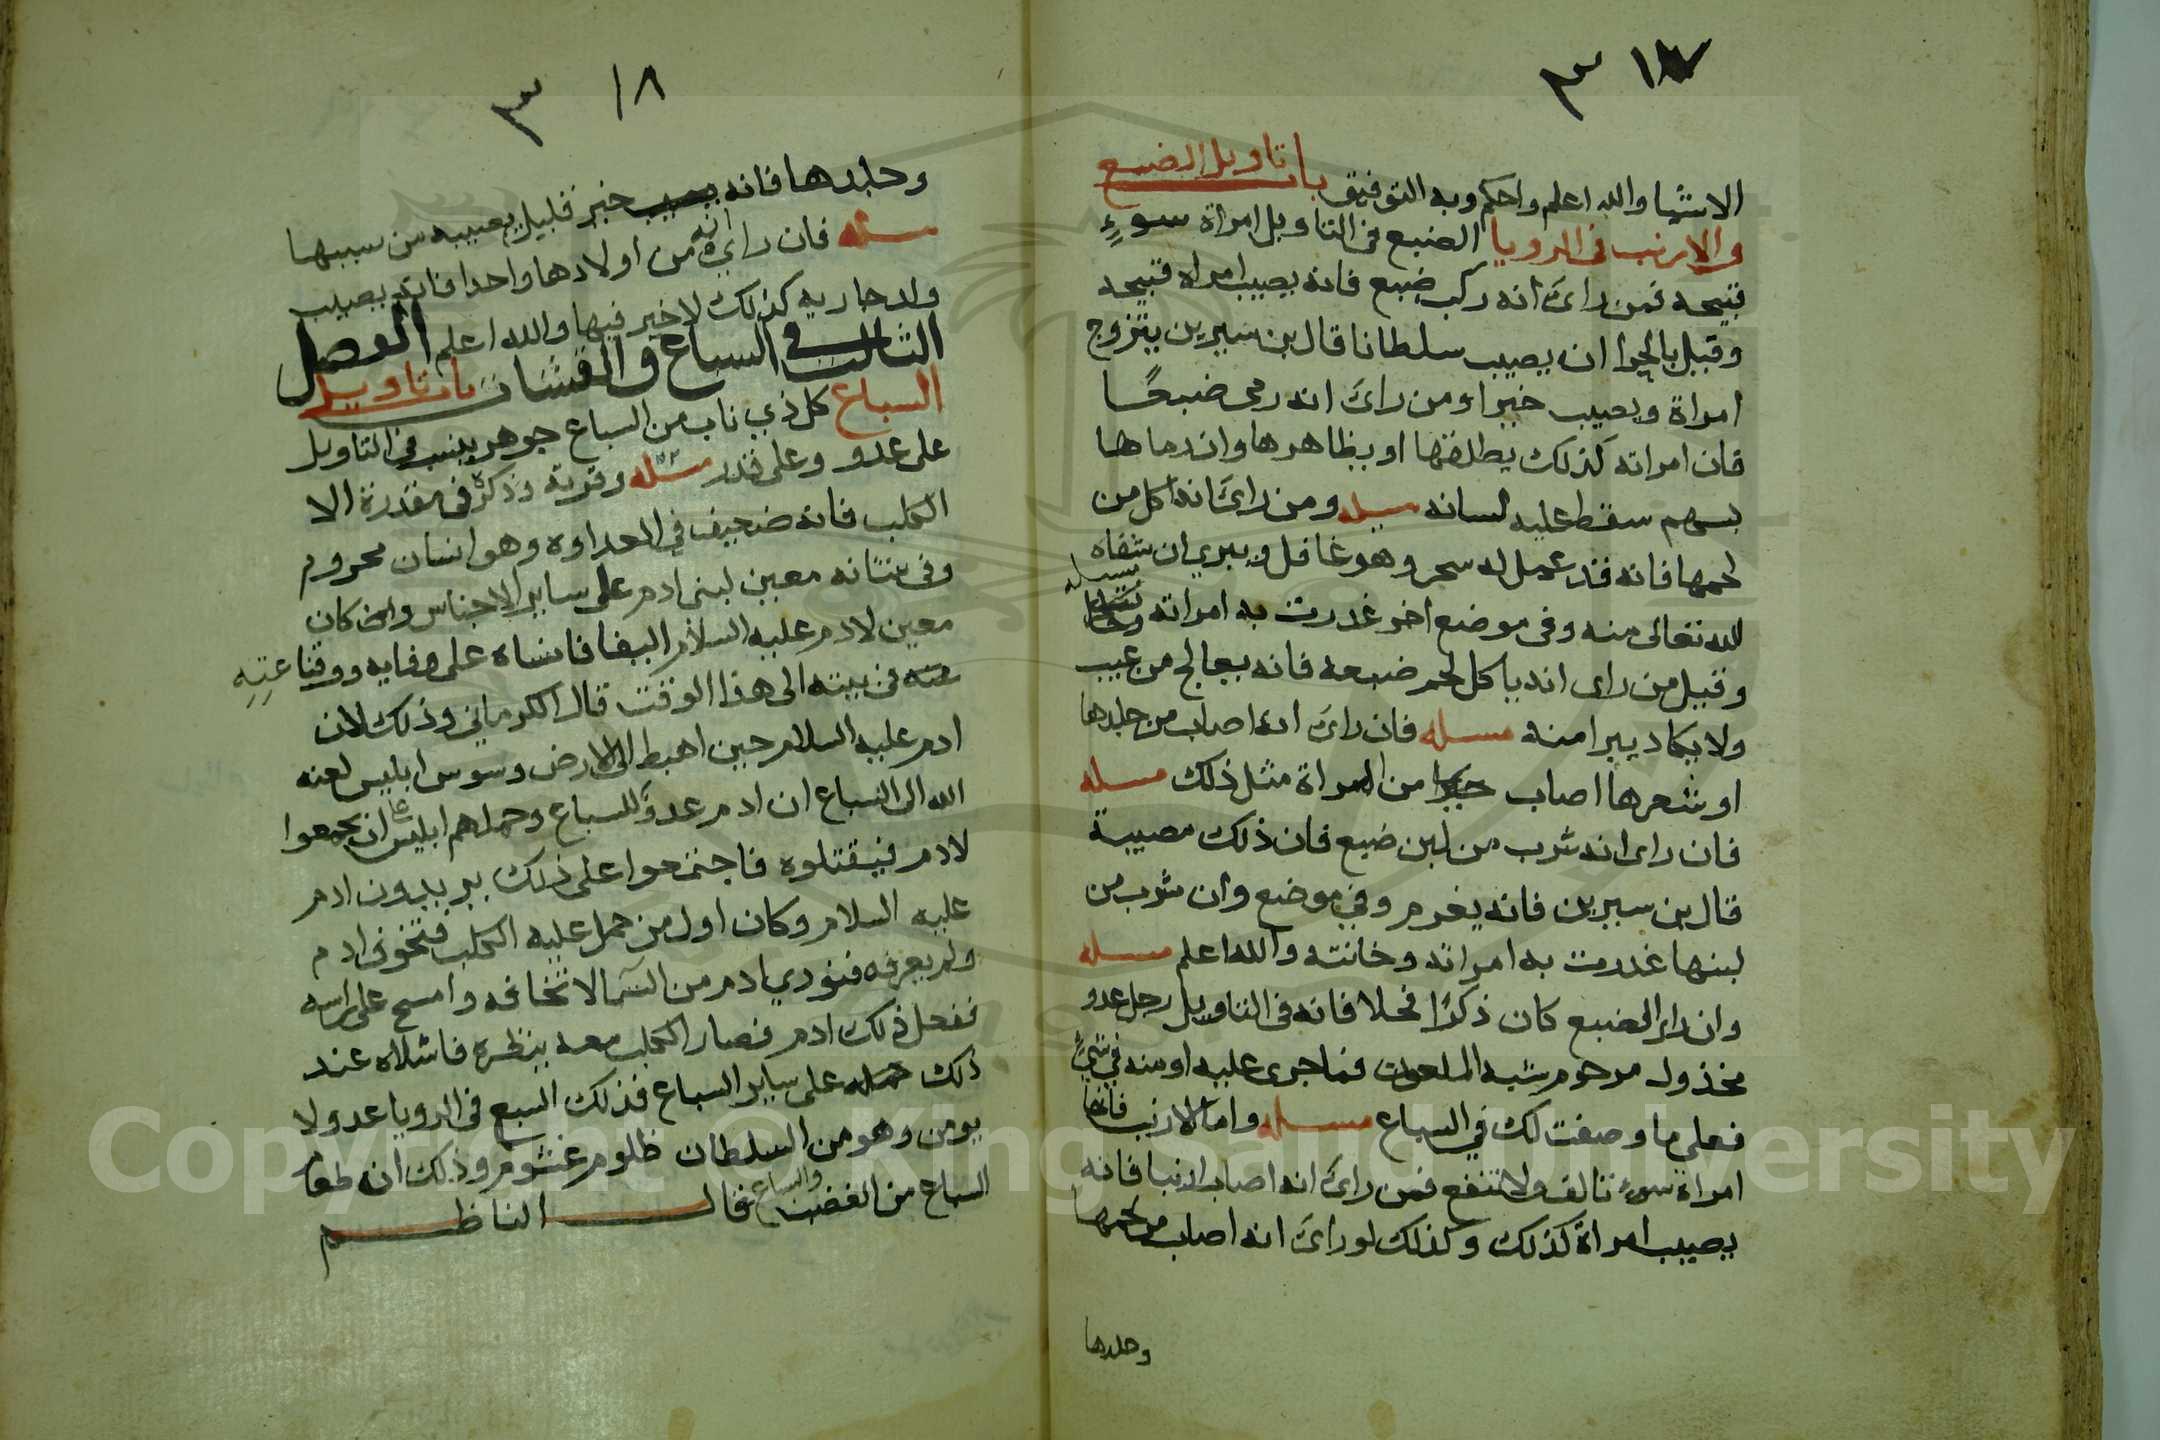 ٣ ١٧
الاشيا والله اعلم واحكم وبه التوفيق باب تاويل الضبع
والارنب في الرويا الضبع في التاويل امراة سوءٍ
قبيحه فمن رائ انه ركب ضبع فانه يصيب امراه قبيحه
وقيل بالحرا ان يصيب سلطانا قال بن سيرين يتزوج
امراة ويصيب خيرا ومن رائ انه رمى ضبعًا
فان امراته كذلك يطلقها او يظاهرها وان رماها
بسهم سقط عليه لسانه مسله ومن رائ انه اكل من
لحمها فانه قد عمل له سحر وهو غافل ويبري ان شفاه
الله تعالى منه وفي موضع اخر غدرت به امراته مسله
وقيل من راى انه ياكل لحم ضبعه فانه يعالج من عيب
ولا يكاد يبرا منه مسله فان رائ انه اصاب من جلدها
او شعرها اصاب خيرا من امراة مثل ذلك مسله
فان راى انه شرب من لبن ضبع فان ذلك مصيبة
قال بن سيرين فانه يغرم وفي موضع وان شرب من
لبنها غدرت به امراته وخانته والله اعلم مسله
وان راى الضبع كان ذكرًا فحلا فانه في التاويل رجل عدو
مخذول مرحوم شبه الملعون فما جرى عليه او منه في شيءٍ
فعلى ما وصفت لك في السباع مسله واما الارنب فانها
امراة سوء تالف ولا تنفع فمن رائ انه اصاب ارنبا فانه
يصيب امراة كذلك وكذلك لو رائ انه اصاب من لحمها
وجلدها
٣ ١٨
وجلدها فانه يصيب خير قليل يصيبه من سببها
مسله فان رائ انه من اولادها واحدا فانه يصيب
ولد جاريه كذلك لا خير فيها والله اعلم الفصل
الثالث في السباع و باب تاويل
السباع كل ذي ناب من السباع جوهر ينسب في التاويل
على عدو وعلى قدر مسله وقوته وذكره في مقدرة الا
الكلب فانه ضعيف في العداوه وهو انسان محروم
وفي شانه معين لبني ادم على ساير الاجناس وان كان
معين لادم عليه السلام البقا فانشاه على وفايه ووقناعته
في بيته الى هذا الوقت قال الكرماني وذلك لان
ادم عليه السلام حين اهبط الى الارض وسوس ابليس لعنه
الله الى السباع ان ادم عدو للسباع وحملهم ابليس على ان يجمعوا
لادم فيقتلوه فاجتمعوا على ذلك يريدون ادم
عليه السلام وكان اول من حمل عليه الكلب فتخوف ادم
ولم يعرفه فنودي ادم من السما لا تخافه وامسح على راسه
ففعل ذلك ادم فصار الكلب معه ينظره فاشلاه عند
ذلك حمله على ساير السباع فذلك السبع في الرويا عدو لا
يومن وهو من السلطان ظلوم غشوم وذلك ان طعام
السباع من الغضب والسباع قال الناظم
Copyright © King Saud University